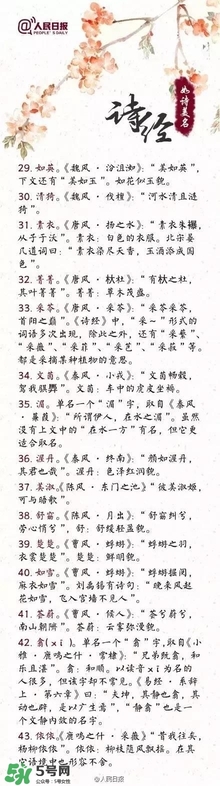 人民日报
PEOPLE'S DAILY
如诗美名
诗经
29. 如英。《魏风·汾沮洳》:“美如英”,
下文还有“美如玉”。如花似玉貌。
30. 清猗。《魏风·伐檀》:“河水清且涟
猗”。
31. 素衣。《唐风·扬之水》:“素衣朱襮,
从子于沃”。素衣:白色的衣服。北宋晏
几道词曰:“素衣染尽天香,玉酒添成国
色”。
32. 菁菁。《唐风·杕杜》:“有杕之杜,
其叶菁菁”。菁菁:草木茂盛。
33. 采苓。《唐风·采苓》:“采苓采苓,
首阳之巅”。《诗经》中,“采一”形式的
词语多次出现,除此之外,还有“采蘩”、
“采薇”、“采菲”、“采艺”、“采菽”等。
都是采摘某种植物的意思。
34. 文茵。《秦风·小戎》:“文茵畅毂,
驾我骐馵”。文茵:车中的虎皮坐褥。
35. 湄。单名一个“湄”字,取自《秦风
·蒹葭》:“所谓伊人,在水之湄”。虽然
没有上文中的“在水一方”有名,但它更
适合取名。
36. 渥丹。《秦风·终南》:“颜如渥丹,
其君也哉”。渥丹:色泽红润貌。
37. 美淑。《陈风·东门之池》:“彼美淑姬,
可与晤歌”。
38. 舒窈。《陈风·月出》:“舒窈纠兮,
劳心悄兮”。舒:舒缓轻盈貌。
39. 楚楚。《曹风·蜉蝣》:“蜉蝣之羽,
衣裳楚楚”。楚楚:鲜明貌。
40. 如雪。《曹风·蜉蝣》:“蜉蝣掘阅,
麻衣如雪”。刘禹锡有诗句:“晚来风起
花如雪,飞入宫墙不见人”。
41. 荟蔚。《曹风·候人》:“荟兮蔚兮,
南山朝隮”。荟蔚:云雾弥漫貌。
42. 翕(xi)。单名一个“翕”字,取自《小
雅·鹿鸣之什·常棣》:“兄弟既翕,和
乐且湛”。翕:和顺。以读音xi为名的
人很多,但该字却不常见。《易经·系辞
上·第六章》曰:“夫坤,其静也翕,其
动也辟,是以广生焉”,“静翕”也是一
个文静内敛的名字。
43. 依依。《鹿鸣之什·采薇》“昔我往矣,
杨柳依依”。依依:柳枝随风飘拂。在其
它语境中也形容不舍。
5号网
@人民日报